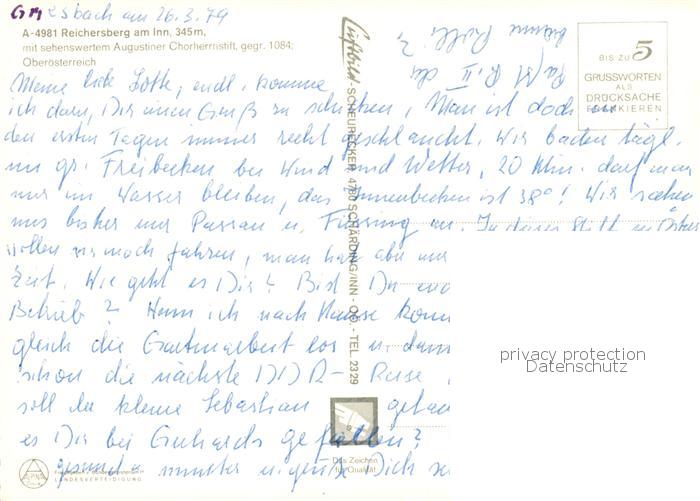 Griesbach am 26.3.79
A-4981 Reichersberg am Inn, 345m,
mit sehenswertem Augustiner Chorherrnstift, gegr. 1084;
Oberösterreich
Meine liebe Lotte, endl. komme
ich dazu, Dir einen Gruß zu schicken, Man ist doch
den ersten Tagen immer recht geschlaucht. Wir baden tägl.
im gr. Freibecken bei Wind und Wetter, 20 Min. darf man
nur im Wasser bleiben, das Innenbecken ist 38°! Wir sahen
uns bisher nur Passau u. Füssing an. In dieses Stift
wollen wir noch fahren, man hat aber nur
Zeit. Wie geht es Dir? Bist Du
Betrieb? Wenn ich nach Hause komm
gleich die Gartenarbeit los u. dann
schon die nächste DDR-Reise
soll der kleine Sebastian getau
es Dir bei Gerhards gefallen?
gesund u. munter
Luftbild-SCHEURECKER, 4780 SCHÄRDING/INN - OÖ. - TEL. 2329
BIS ZU 5
GRUSSWORTEN
ALS
DRUCKSACHE
FRANKIEREN
Das Zeichen
für Qualität
ALPINE
LANDESVERTEIDIGUNG
privacy protection
Datenschutz